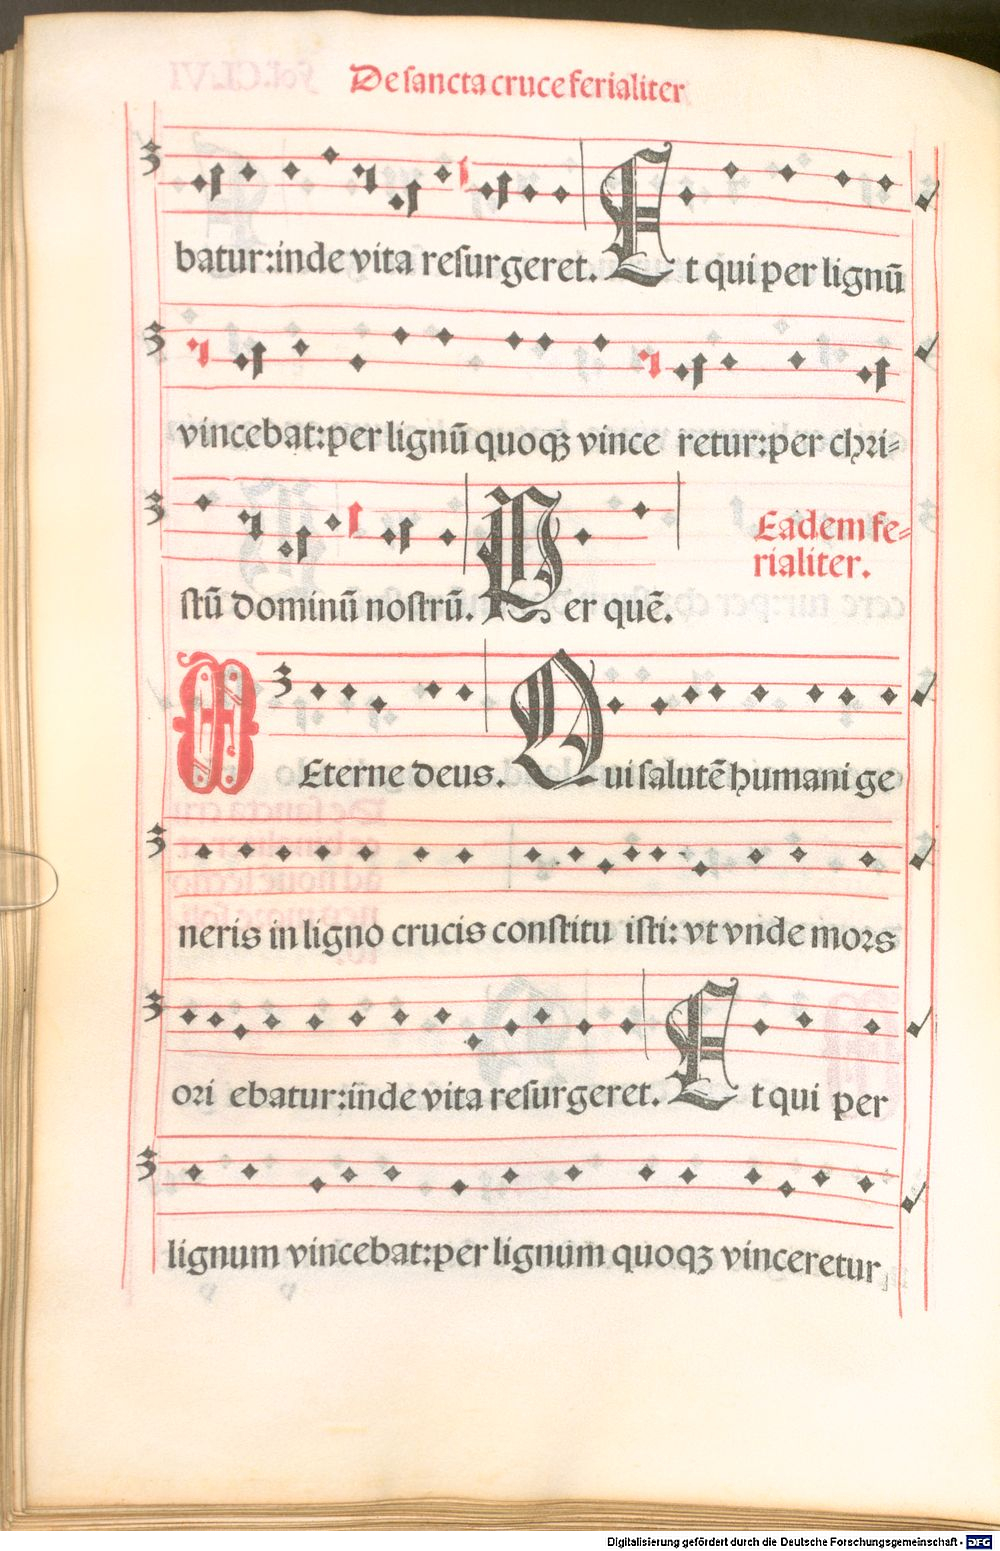 De sancta cruce ferialiter
batur:inde vita resurgeret. Et qui per lignū
vincebat:per lignū quoqꝫ vince retur:per chri-
stū dominū nostrū. Per quē.
Eadem fe-
rialiter.
Eterne deus. Qui salutē humani ge
neris in ligno crucis constitu isti: vt vnde mors
ori ebatur:inde vita resurgeret. Et qui per
lignum vincebat:per lignum quoqꝫ vinceretur
Digitalisierung gefördert durch die Deutsche Forschungsgemeinschaft - DFG